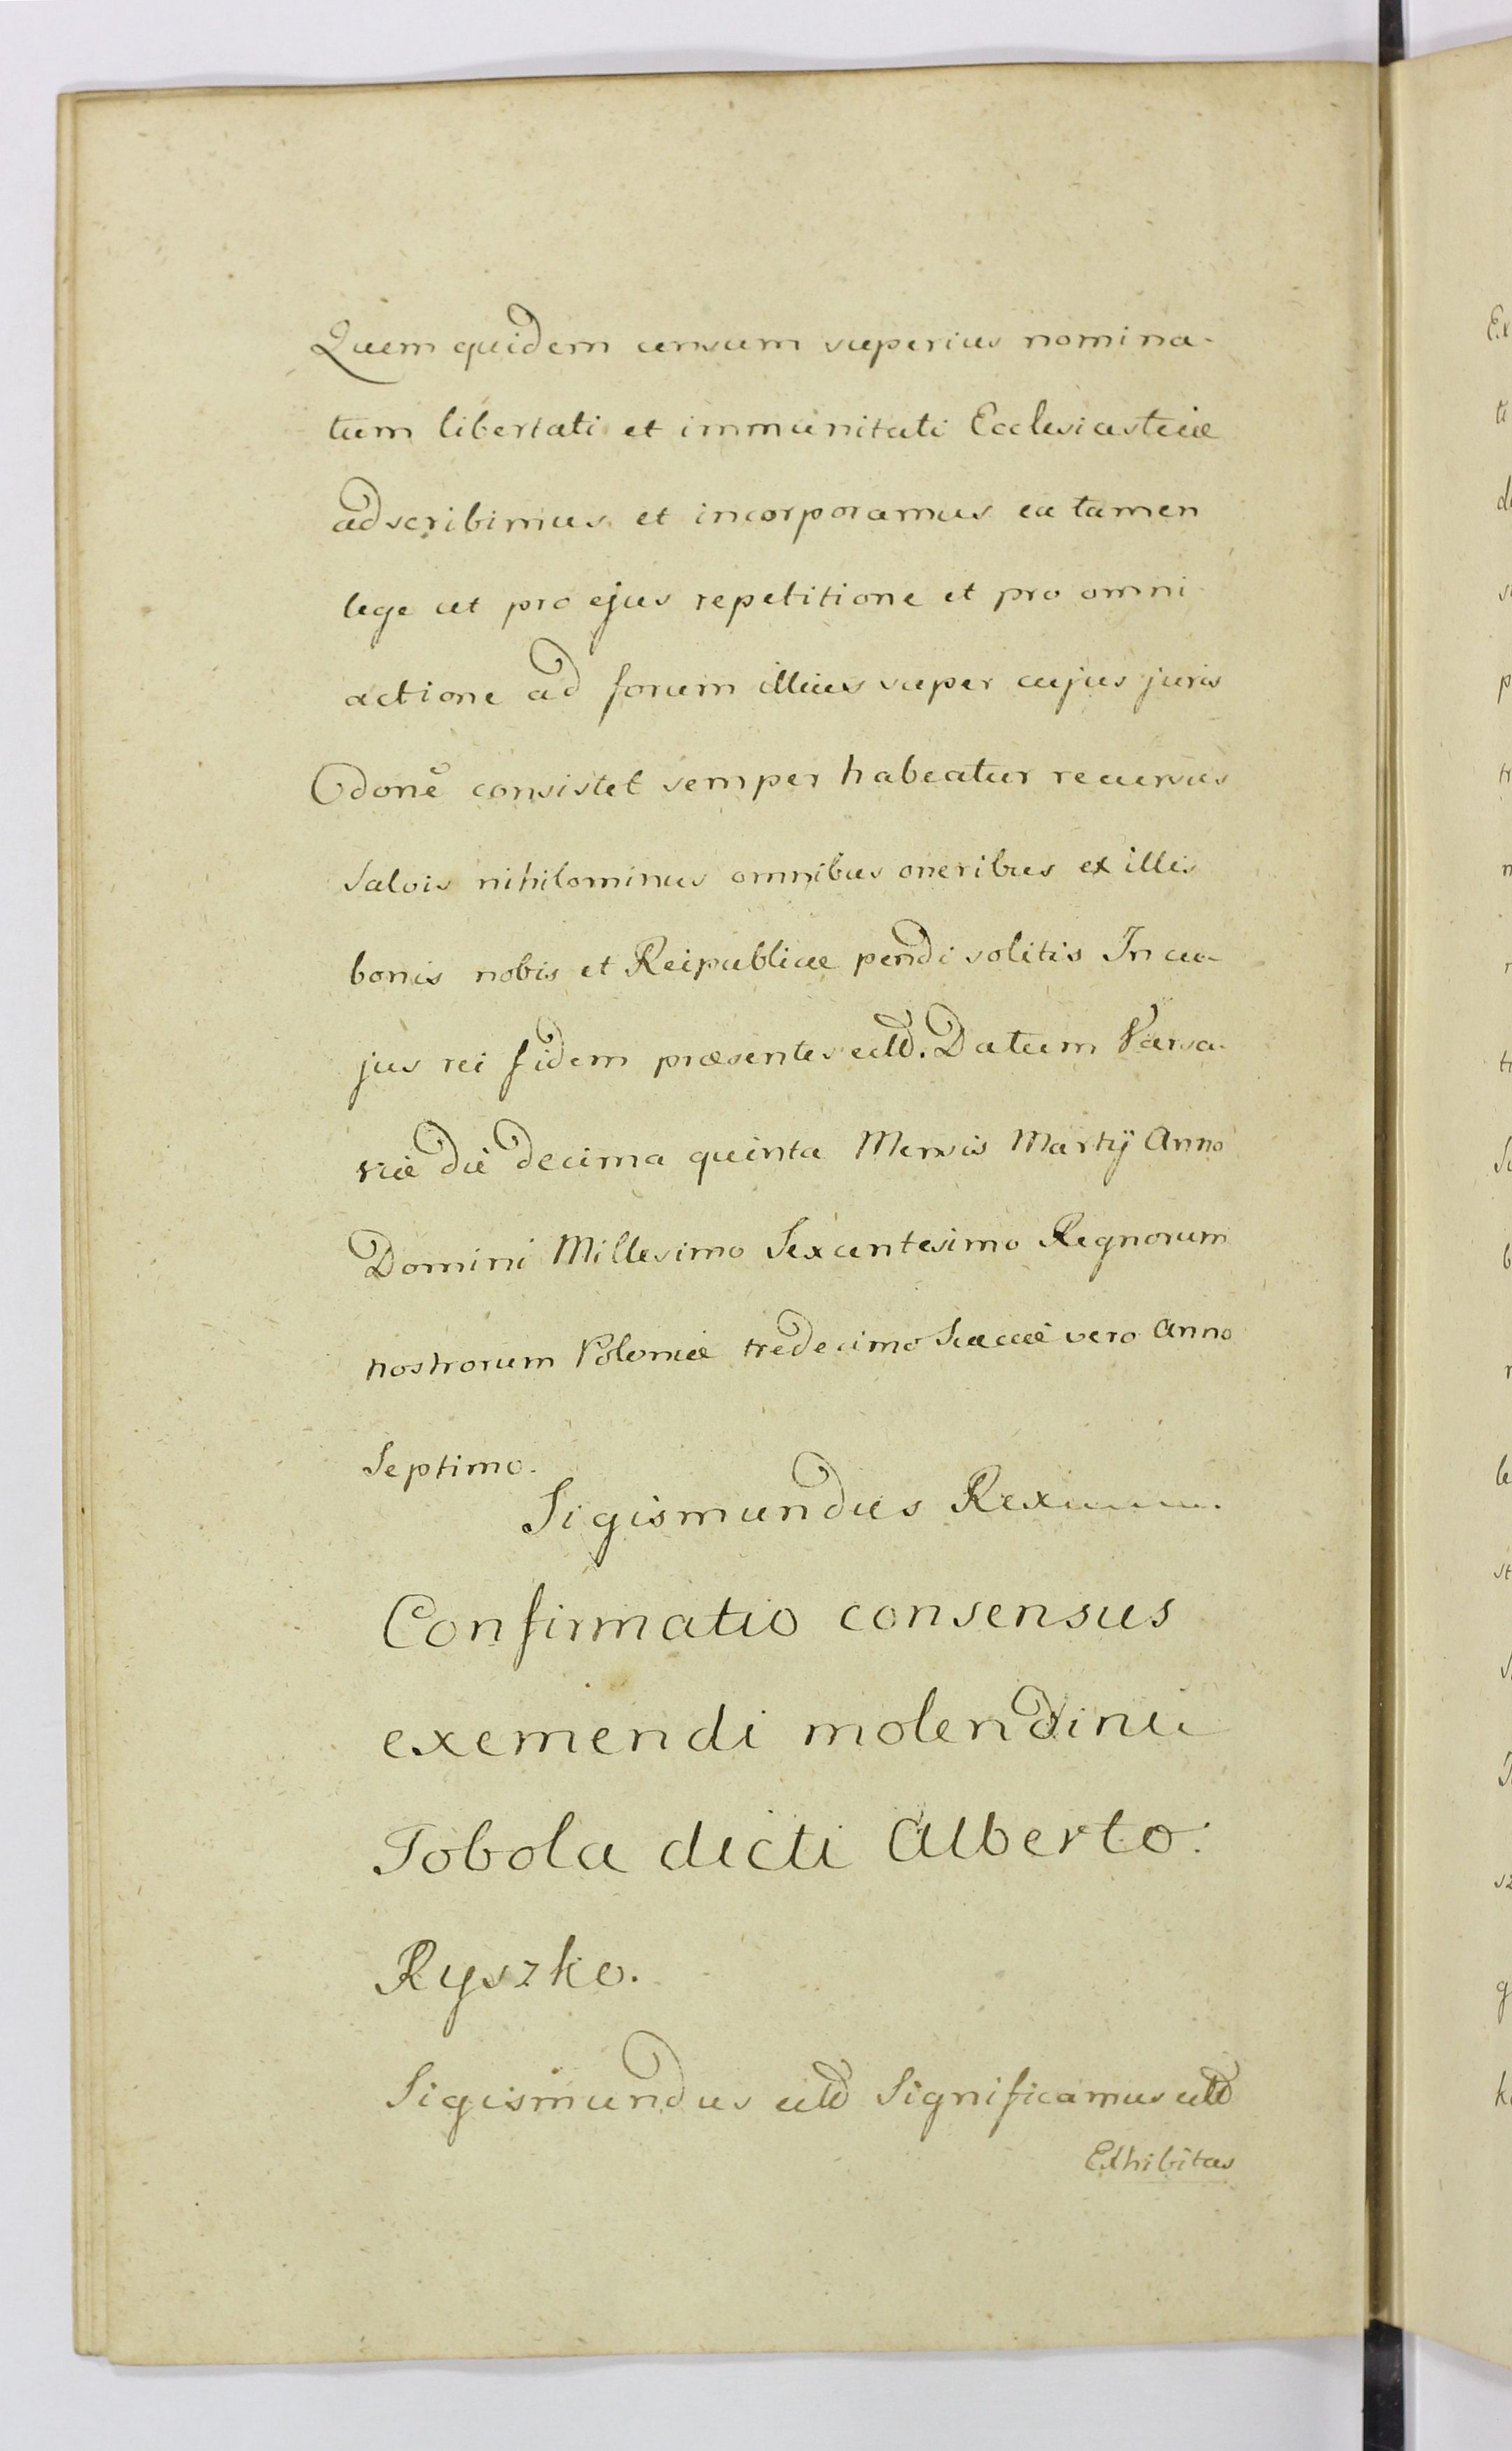 Quem quidem censum superius nomina-
tum libertati et immunitati Ecclesiasticæ
adscribimus et incorporamus ea tamen
lege ut pro ejus repetitione et pro omni
actione ad forum illius super cujus juris
donẽ consistet semper habeatur recursus
Salvis nihilominus omnibus oneribus ex illis
bonis nobis et Reipublicæ pendi solitis In cu-
jus rei fidem præsentes etc. Datum Varsa-
viæ die decima quinta Mensis Martij Anno
Domini Millesimo Sexcentesimo Regnorum
nostrorum Poloniæ tredecimo Sueciæ vero Anno
Septimo.
Sigismundus Rex
Confirmatio consensus
exemendi molendini
Tobola dicti Alberto.
Ryszko.
Sigismundus etc Significamus etc
Exhibitas